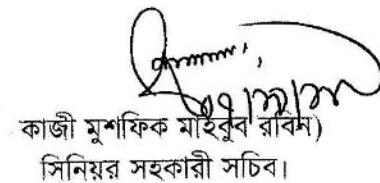 কাজী মুশফিক মাহবুব রবিন)
সিনিয়র সহকারী সচিব।